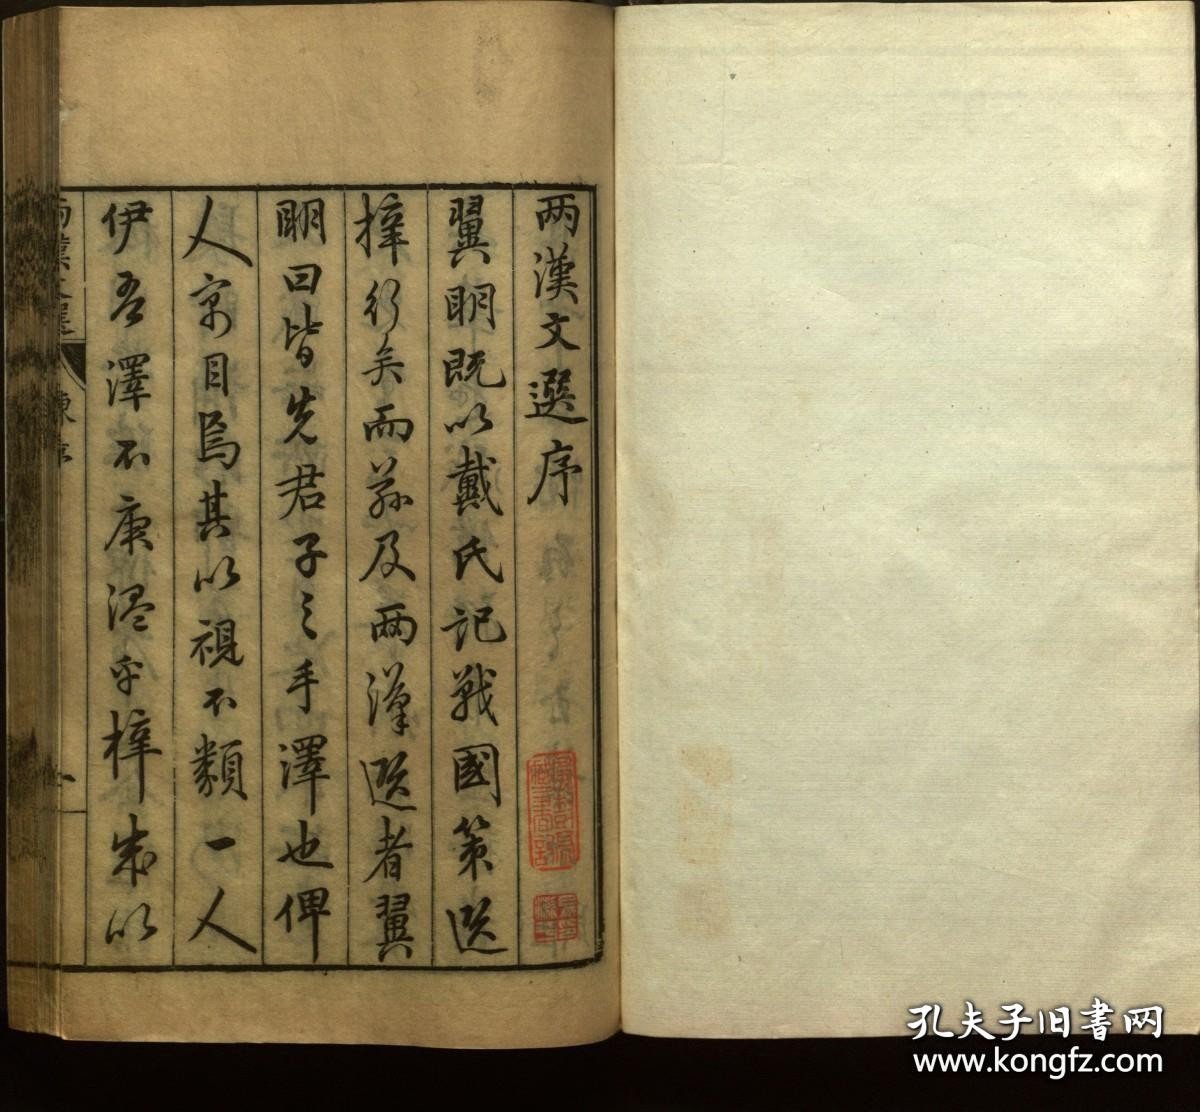 兩漢文選序
翼明既以戴氏記戰國策選
梓行矣而并及兩漢選者翼
明曰皆先君子之手澤也俾
人寓目焉其以視不類一人
伊吾澤不庚湮乎梓成以
兩漢文選 陳序 一
孔夫子旧書网
www.kongfz.com